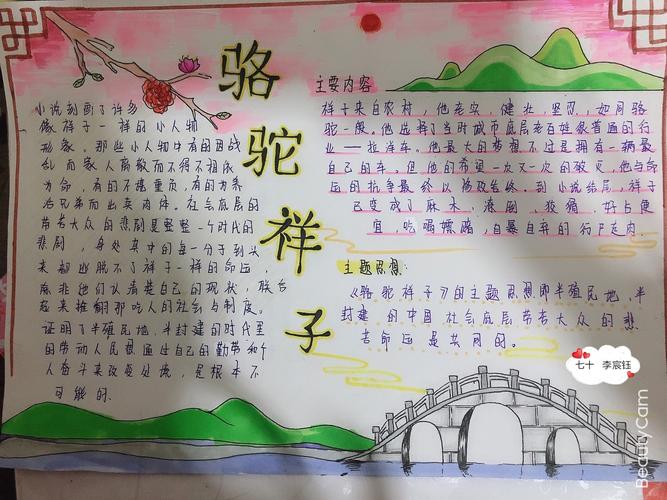 骆驼祥子
小说刻画了许多
像祥子一样的小人物
形象。那些小人物中有的因战
乱而家人离散而不得不相依
为命，有的不堪重负，有的为养
活兄弟而出卖肉体。社会底层的
劳苦大众的悲剧是整整一个时代的
悲剧，身处其中的每一分子到头
来都逃脱不了祥子一样的命运，
除非他们认清楚自己的现状，联合
起来推翻那吃人的社会与制度。
证明了半殖民地、半封建的时代里
的劳动人民想通过自己的勤劳和个
人奋斗来改变处境，是根本不
可能的、
主要内容
祥子来自农村，他老实、健壮、坚忍，如同骆
驼一般。他选择了当时城市底层老百姓很普通的行
业——拉洋车。他最大的梦想不过是拥有一辆最
自己的车。但他的希望一次又一次的破灭，他与命
运的抗争最终以惨败告终。到小说结尾，祥子
已变成了麻木、潦倒、狡猾、好占便
宜、吃喝嫖赌，自暴自弃的行尸走肉
主题思想：
《骆驼祥子》的主题思想即半殖民地，半
封建的中国社会底层劳苦大众的悲
苦命运是共同的。
七十 李宸钰
BeautyCam